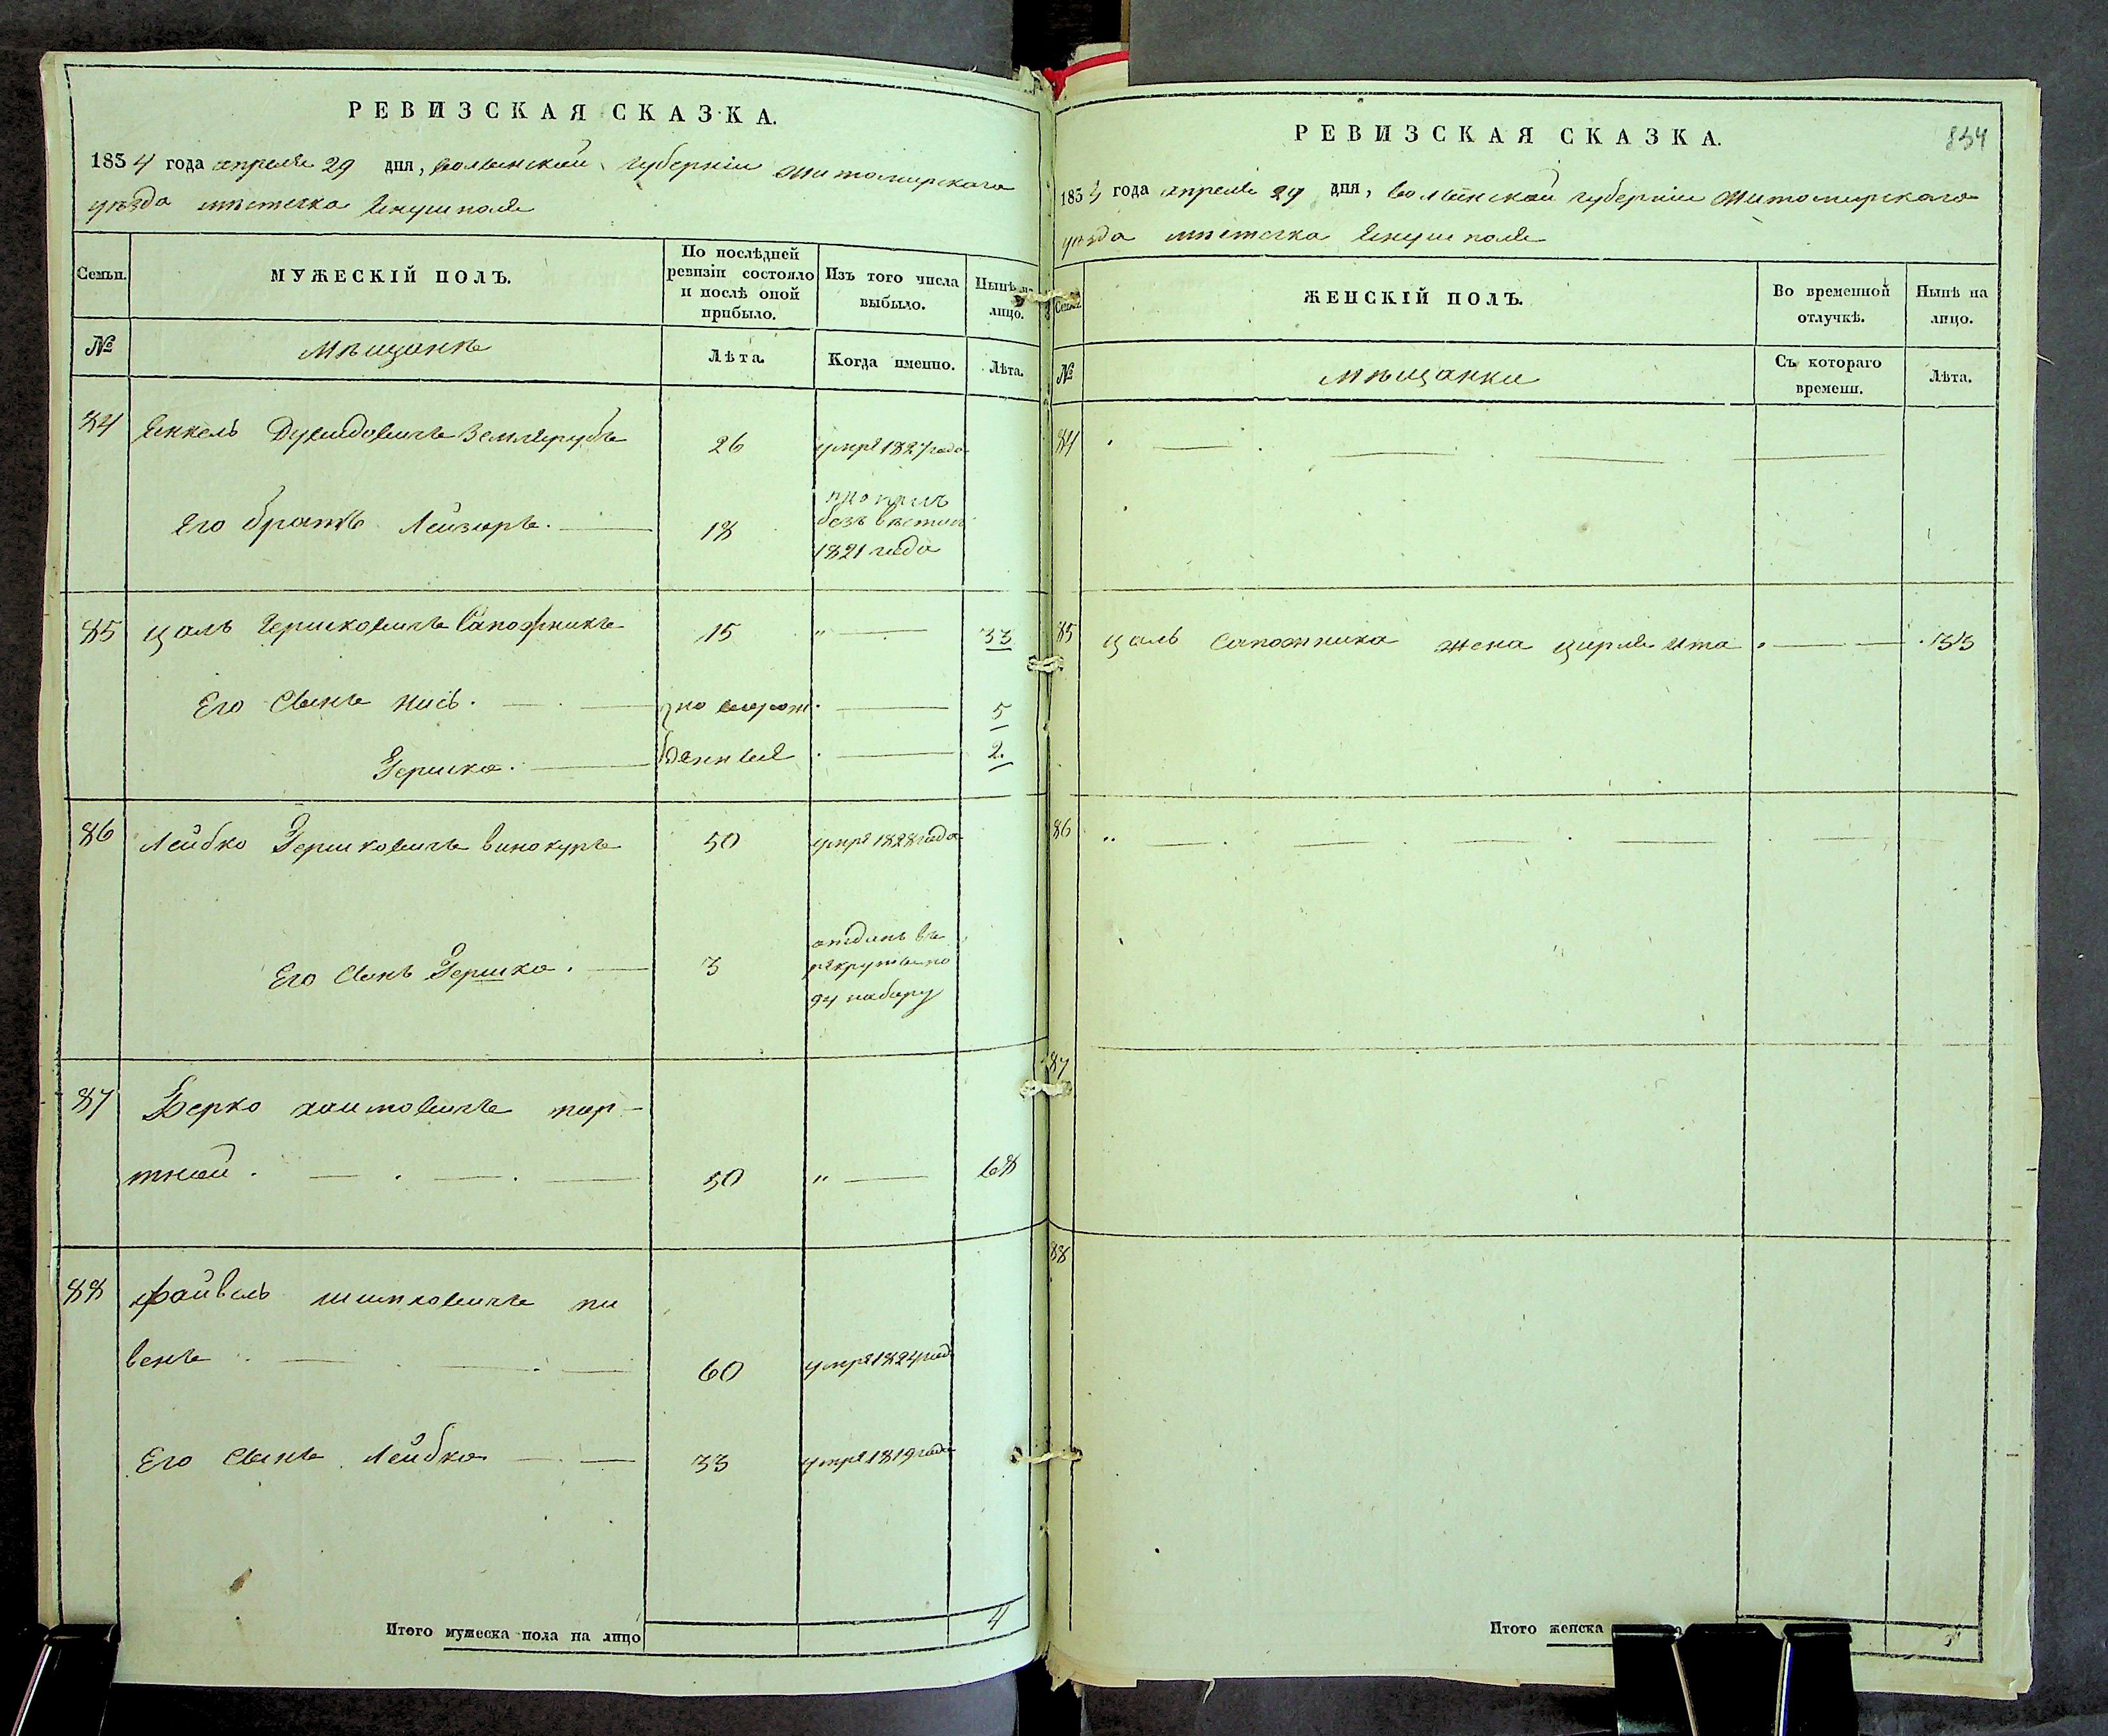 РЕВИЗСКАЯ СКАЗКА.
1834 года апреля 29 дня, волынской губерніи житомирскаго
уѣзда мѣстечка Янушполя
Семьи.
МУЖЕСКІЙ ПОЛЪ.
По послѣдней ревизіи состояло и послѣ оной прибыло.
Изъ того числа выбыло.
Нынѣ на лицо.
№
Мѣщанѣ
Лѣта.
Когда именно.
Лѣта.
84 Янкель Дувидовичъ Землярубъ 26 умре 1827 года
Его братъ Лейзоръ. 18
безъ вѣсти
1821 года
85 Цаль Гершковичъ Сапожникъ 15 " 33
Его Сынъ Нись. 5
Гершко. 2.
86 Лейбко Гершковичъ винокуръ 50 умре 1828 года
Его Сынъ Гершко. 3 отданъ въ
рекруты по
94 набору
87 Берко хаимовичъ пор-
тной. 50 " 68
88 Файвель пи
венъ 60 умре 1824 года
Его Сынъ Лейбко 33 умре 1819 года
Итого мужеска пола на лицо 4
РЕВИЗСКАЯ СКАЗКА.
834
1834 года апреля 29 дня, волынской губерніи житомирскаго
уѣзда мѣстечка Янушполя
ЖЕНСКІЙ ПОЛЪ.
Во временной отлучкѣ.
Нынѣ на лицо.
№
Мѣщанки
Съ котораго времени.
Лѣта.
84
85 Цаль Сапожника жена Цирля Ита 33
86
87
88
Итого женска